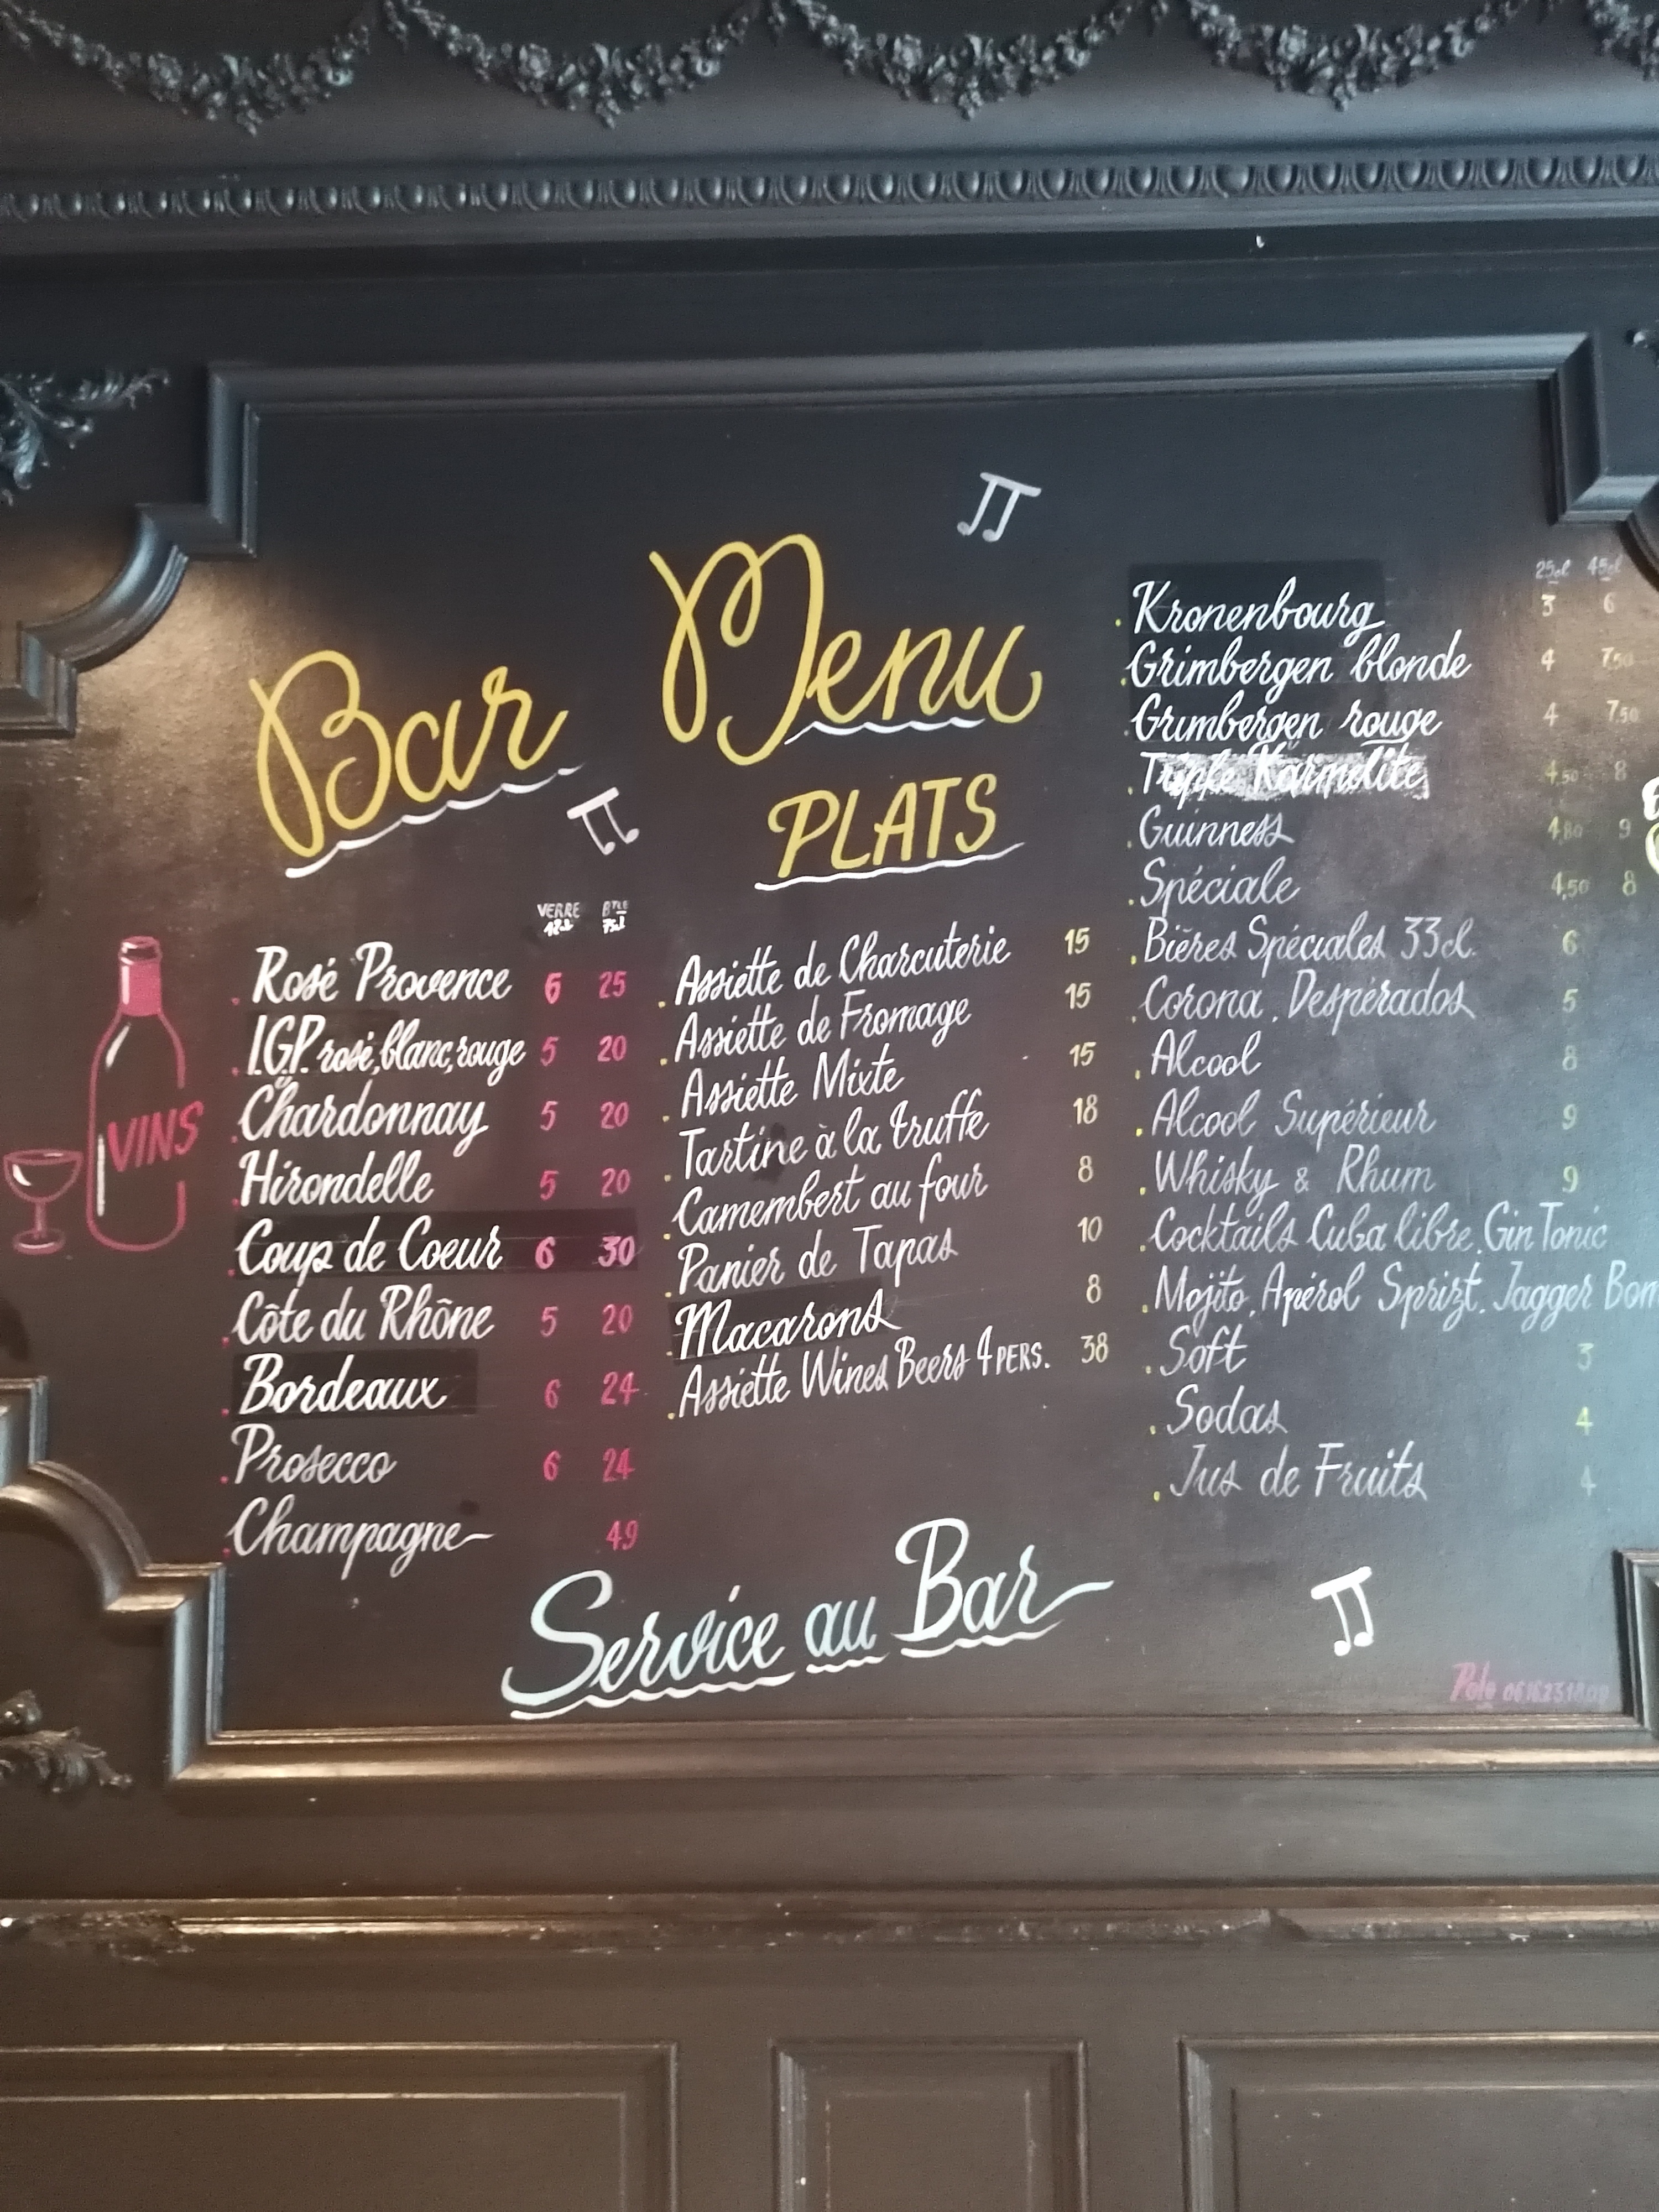 Bar
Menu
PLATS
VINS
VERRE BTLE
75cl
. Rosé Provence 6 25
. I.G.P. rosé, blanc, rouge 5 20
. Chardonnay 5 20
. Hirondelle 5 20
. Coup de Coeur 6 30
. Côte du Rhône 5 20
. Bordeaux 6 24
. Prosecco 6 24
. Champagne 49
. Assiette de Charcuterie 15
. Assiette de Fromage 15
. Assiette Mixte 15
. Tartine à la truffe 18
. Camembert au four 8
. Panier de Tapas 10
. Macarons 8
. Assiette Wines Beers 4 PERS. 38
25cl 45cl
. Kronenbourg 3 6
. Grimbergen blonde 4 7,50
. Grimbergen rouge 4 7,50
. Triple Karmelite 4,50 8
. Guinness 4,80 9
. Spéciale 4,50 8
. Bières Spéciales 33cl. 6
. Corona, Despérados 5
. Alcool 8
. Alcool Supérieur 9
. Whisky & Rhum 9
. Cocktails Cuba libre, Gin Tonic
. Mojito, Apérol Sprizt, Jagger Bom
. Soft 3
. Sodas 4
. Jus de Fruits 4
Service au Bar
Polo